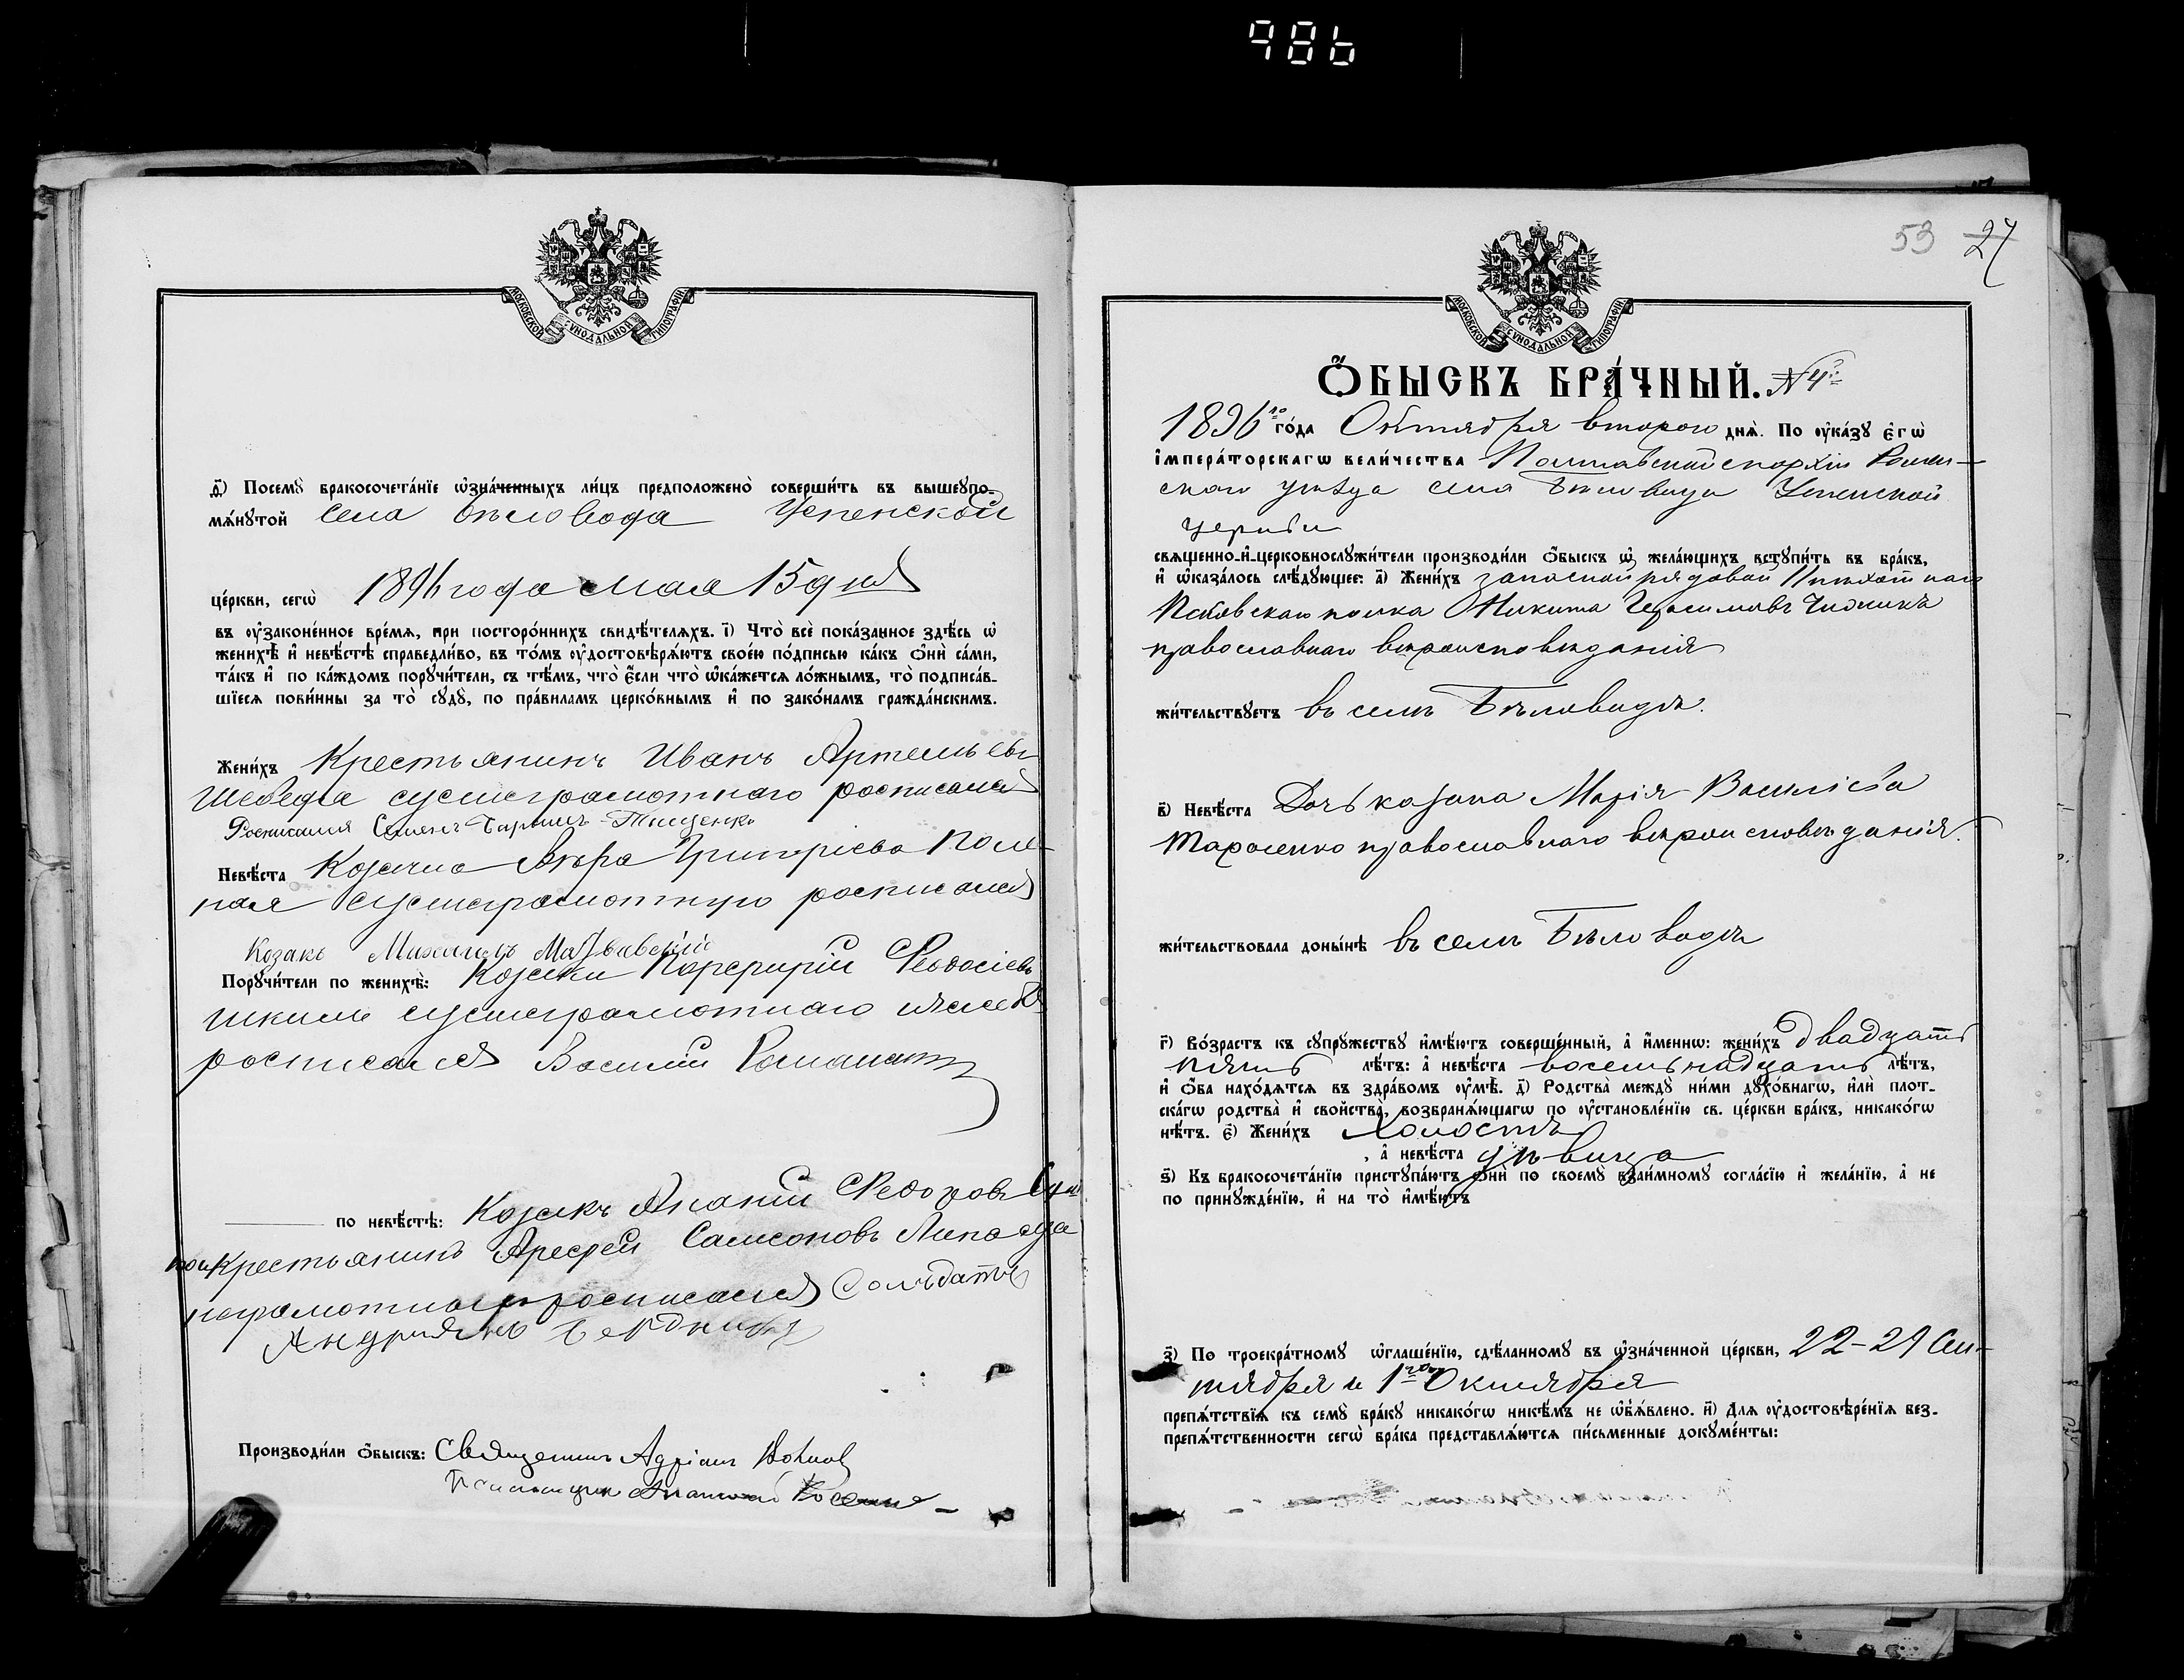 986
МОСКОВСКОЙ СѴНОДАЛЬНОЙ ТИПОГРАФІИ
ѳ҃) Посемꙋ бракосочета́нїе ѡ҆зна́ченныхъ ли́цъ предположено̀ соверши́ть въ вышеꙋпо-
мѧ́нꙋтой села Бѣловода Успенской
це́ркви, сегѡ̀ 1896 года мая 15 дня
въ ᲂу҆зако́ненное вре́мѧ, при посторо́ннихъ свидѣ́телѧхъ. і҃) Что̀ всѐ пока́занное здѣ́сь ѡ҆
женихѣ̀ и҆ невѣ́стѣ справедли́во, въ то́мъ ᲂу҆достовѣрѧ́ютъ свое́ю по́дписью ка́къ ѻ҆нѝ са́ми,
та́къ и҆ по ка́ждомъ порꙋчи́тели, съ тѣ́мъ, что̀ є҆́сли что̀ ѡ҆ка́жетсѧ ло́жнымъ, то̀ подписа́в-
шїесѧ пови́нны за то̀ сꙋдꙋ̀, по пра́виламъ церко́внымъ и҆ по зако́намъ гражда́нскимъ.
Жени́хъ Крестьянинъ Иванъ Артемьевъ
Шебедя сущеграмотнаго росписался
Росписался Семенъ Тищенко
Невѣ́ста Козачка Вѣра Григоріева
сущеграмотную росписался
Козакъ Михаилъ
Порꙋчи́тели по женихѣ̀: Козаки Порфирій Феодосіевъ
сущеграмотнаго
росписался Василій Романъ
по невѣ́стѣ: Козакъ Ананій Федоровъ
Крестьянинъ Арефей Самсоновъ
неграмотныхъ росписался Солъдатъ
Андриянъ Бердникъ
Производи́ли ѻ҆́быскъ: Священникъ Адріанъ
53 27
МОСКОВСКОЙ СѴНОДАЛЬНОЙ ТИПОГРАФІИ
Ѻ҆́БЫСКЪ БРА́ЧНЫЙ. №
1896го го́да Октября второго днѧ̀. По ᲂу҆ка́зꙋ є҆гѡ̀
і҆мпера́торскагѡ вели́чества Полтавской епархіи Ромен-
скаго уѣзда села Бѣловода Успенской
церкви
свѧще́нно-и҆-церковнослꙋжи́тели производи́ли ѻ҆́быскъ ѡ҆ жела́ющихъ встꙋпи́ть въ бра́къ,
и҆ ѡ҆каза́лось слѣ́дꙋющее: а҃) Жени́хъ запасной рядовой Пѣхотнаго
Псковскаго полка Никита Герасимовъ
православнаго вѣроисповѣданія
жи́тельствꙋетъ въ селѣ Бѣловодѣ.
в҃) Невѣ́ста Дочь казака Марія Василіева
Тарасенко православнаго вѣроисповѣданія.
жи́тельствовала доны́нѣ въ селѣ Бѣловодѣ
г҃) Во́зрастъ къ сꙋпрꙋ́жествꙋ и҆мѣ́ютъ соверше́нный, а҆ и҆́меннѡ: жени́хъ двадцать
пять лѣ́тъ: а҆ невѣ́ста восемьнадцать лѣ́тъ,
и҆ ѻ҆́ба нахо́дѧтсѧ въ здра́вомъ ᲂу҆мѣ̀. д҃) Родства̀ междꙋ̀ ни́ми дꙋхо́внагѡ, и҆лѝ плот-
ска́гѡ родства̀ и҆ свойства̀, возбранѧ́ющагѡ по ᲂу҆становле́нїю св. це́ркви бра́къ, никако́гѡ
нѣ́тъ. є҃) Жени́хъ холостъ
, а҆ невѣ́ста дѣвица
ѕ҃) Къ бракосочета́нїю пристꙋпа́ютъ ѻ҆нѝ по своемꙋ̀ взаи́мномꙋ согла́сїю и҆ жела́нїю, а҆ не
по принꙋжде́нїю, и҆ на то̀ и҆мѣ́ютъ
з҃) По троекра́тномꙋ ѡ҆глаше́нїю, сдѣ́ланномꙋ въ ѡ҆зна́ченной це́ркви, 22-29 Сен-
тября и 1го Октября
препѧ́тствїѧ къ семꙋ̀ бра́кꙋ никако́гѡ никѣ́мъ не ѡ҆б̾ѧ́влено. и҃) Длѧ ᲂу҆достовѣре́нїѧ без-
препѧ́тственности сегѡ̀ бра́ка представлѧ́ютсѧ пи́сьменные докꙋме́нты: